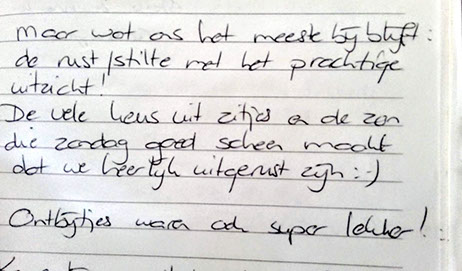 maar wat ons het meeste bij blijft:
de rust/stilte met het prachtige
uitzicht!
De vele keus uit zitjes en de zon
die zondag goed scheen maakt
dat we heerlijk uitgerust zijn :-)
Ontbijtjes waren ook super lekker!